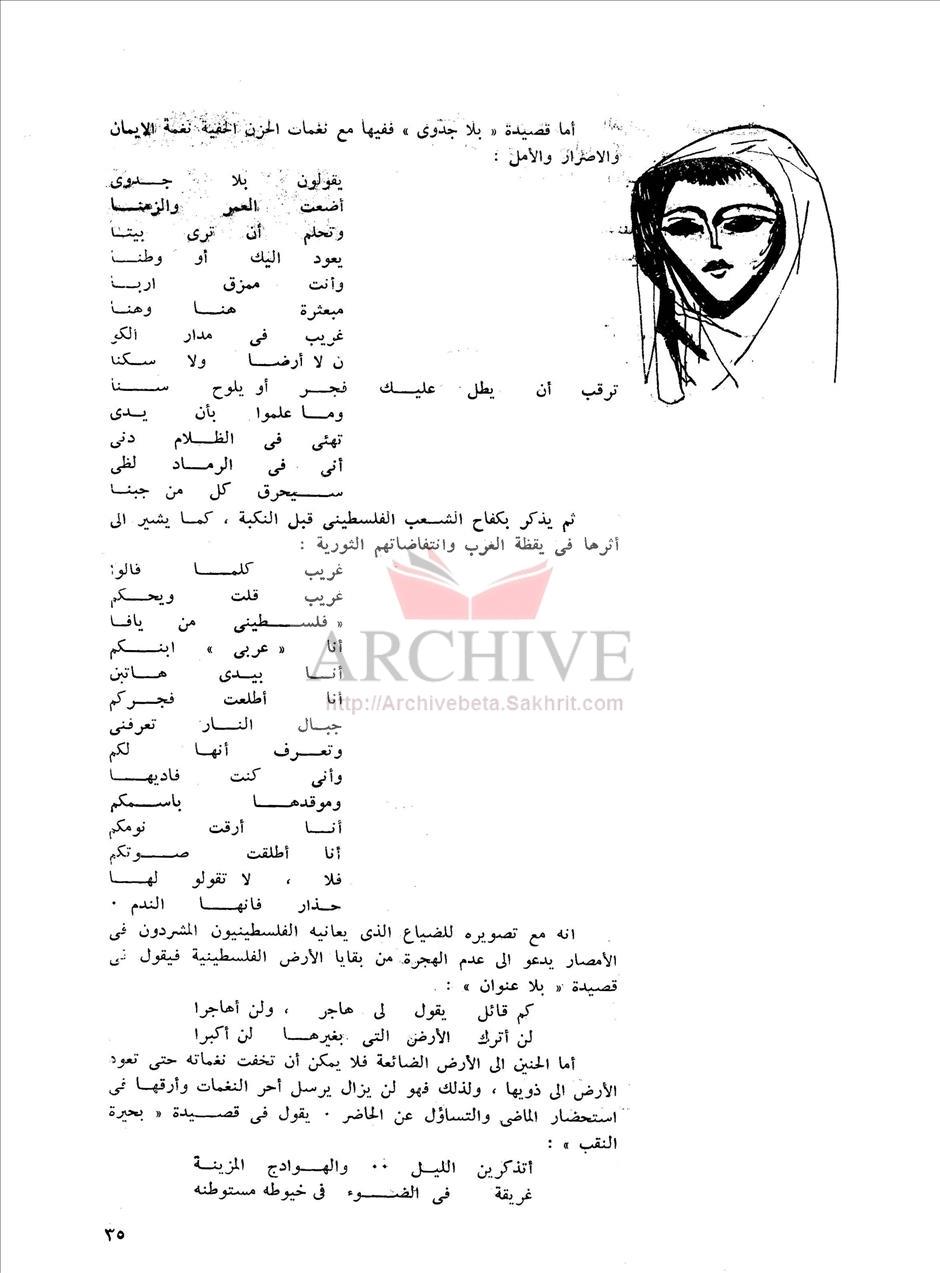 أما قصيدة « بلا جدوى » ففيها مع نغمات الحزن الخفية نغمة الايمان
والاصرار والأمل :
يقولون بلا جدوى
أضعت العمر والزمنا
وتحلم أن ترى بيتا
يعود اليك أو وطنا
وأنت ممزق اربا
مبعثرة هنا وهنا
غريب فى مدار الكو
ن لا أرضا ولا سكنا
ترقب أن يطل عليك فجر أو يلوح سنا
وما علموا بأن يدى
تهئى فى الظلام دنى
أنى فى الرماد لظى
سيحرق كل من جبنا
ثم يذكر بكفاح الشعب الفلسطينى قبل النكبة ، كما يشير الى
أثرها فى يقظة العرب وانتفاضاتهم الثورية :
غريب كلما قالوا
غريب قلت ويحكم
« فلسطينى من يافا
أنا « عربى » ابنكم
أنا بيدى هاتين
أنا أطلعت فجركم
جبال النار تعرفنى
وتعرف أنها لكم
وأنى كنت فاديها
وموقدها باسمكم
أنا أرقت نومكم
أنا أطلقت صوتكم
فلا ، لا تقولو لها
حذار فانها الندم ٠
ARCHIVE
http://Archivebeta.Sakhrit.com
انه مع تصويره للضياع الذى يعانيه الفلسطينيون المشردون فى
الأمصار يدعو الى عدم الهجرة من بقايا الأرض الفلسطينية فيقول فى
قصيدة « بلا عنوان » :
كم قائل يقول لى هاجر ، ولن أهاجرا
لن أترك الأرض التى بغيرها لن أكبرا
أما الحنين الى الأرض الضائعة فلا يمكن أن تخفت نغماته حتى تعود
الأرض الى ذويها ، ولذلك فهو لن يزال يرسل أحر النغمات وأرقها فى
استحضار الماضى والتساؤل عن الحاضر ٠ يقول فى قصيدة « بحيرة
النقب » :
أتذكرين الليل ٠٠ والهوادج المزينة
غريقة فى الضوء فى خيوطه مستوطنه
٣٥